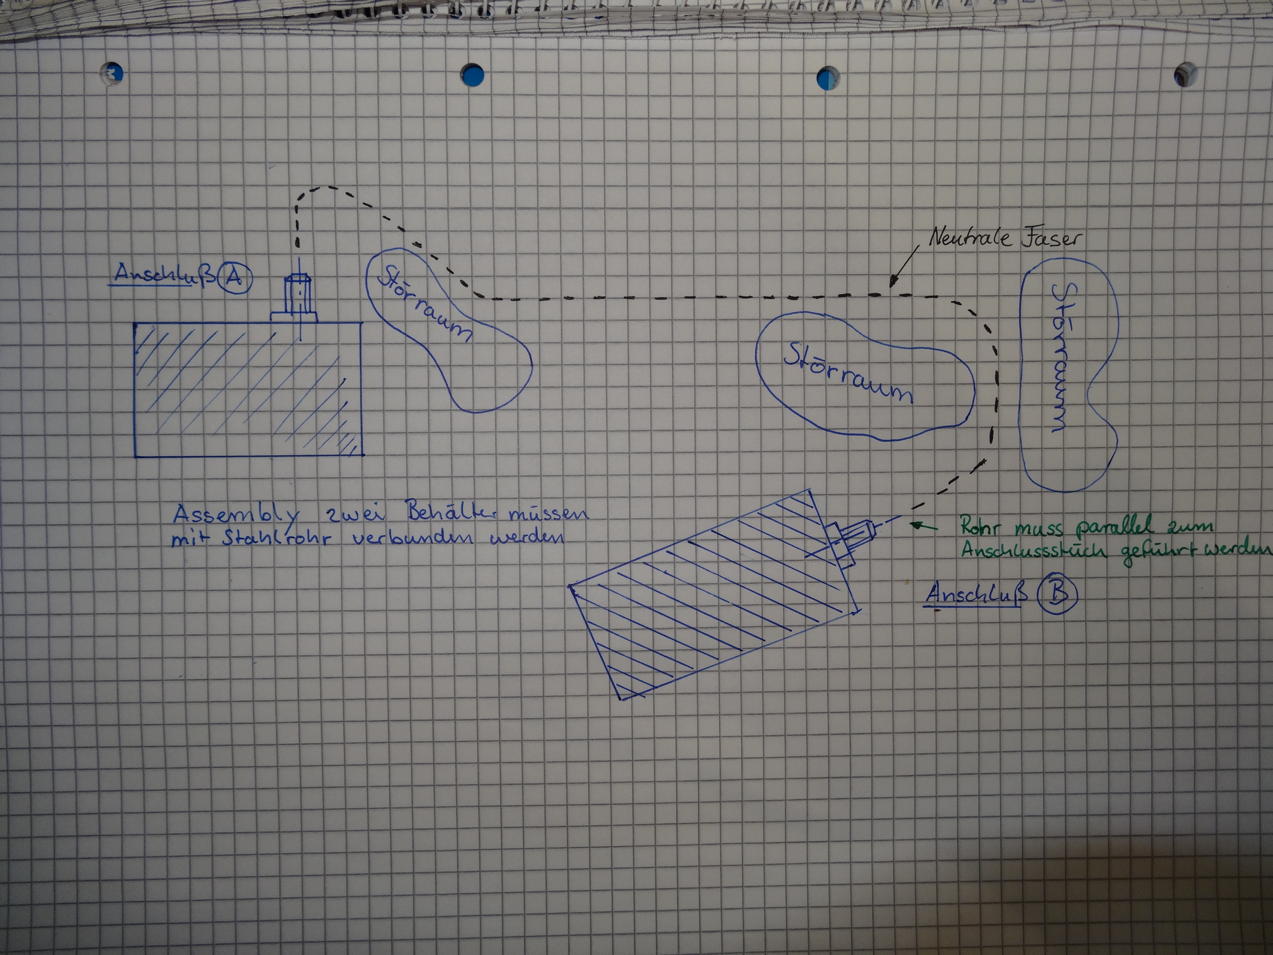 Neutrale Faser
Anschluß A
Störraum
Störraum
Störraum
Assembly zwei Behälter müssen
mit Stahlrohr verbunden werden
Rohr muss parallel zum
Anschlussstück geführt werden
Anschluß B